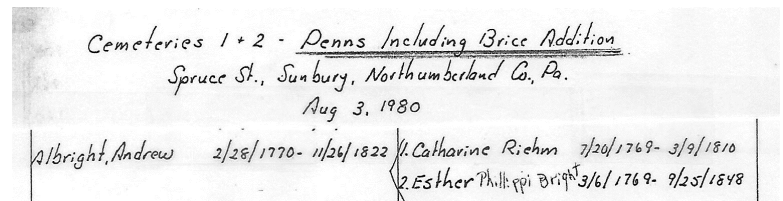 Cemeteries 1 + 2 - Penns Including Brice Addition
Spruce St., Sunbury, Northumberland Co., Pa.
Aug 3, 1980
Albright, Andrew 2/28/1770- 11/26/1822 1. Catharine Riehm 7/20/1769- 3/9/1810
2. Esther Phillippi Bright 3/6/1769- 9/25/1848